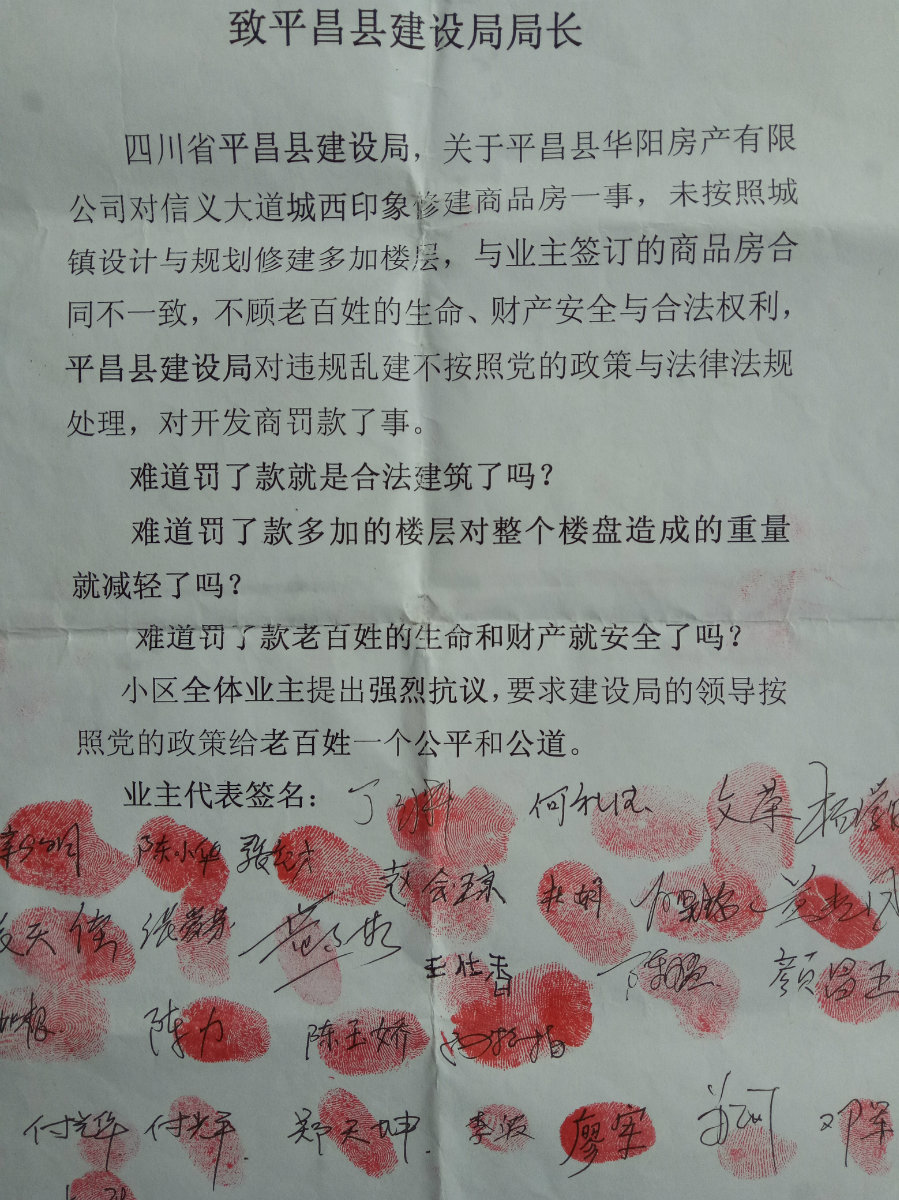 致平昌县建设局局长
四川省平昌县建设局，关于平昌县华阳房产有限
公司对信义大道城西印象修建商品房一事，未按照城
镇设计与规划修建多加楼层，与业主签订的商品房合
同不一致，不顾老百姓的生命、财产安全与合法权利，
平昌县建设局对违规乱建不按照党的政策与法律法规
处理，对开发商罚款了事。
难道罚了款就是合法建筑了吗？
难道罚了款多加的楼层对整个楼盘造成的重量
就减轻了吗？
难道罚了款老百姓的生命和财产就安全了吗？
小区全体业主提出强烈抗议，要求建设局的领导按
照党的政策给老百姓一个公平和公道。
业主代表签名：
陈小华
王仕香 颜昌玉
陈力 陈玉娇
付光华 付光平 郑天坤 李波 廖军 邓军